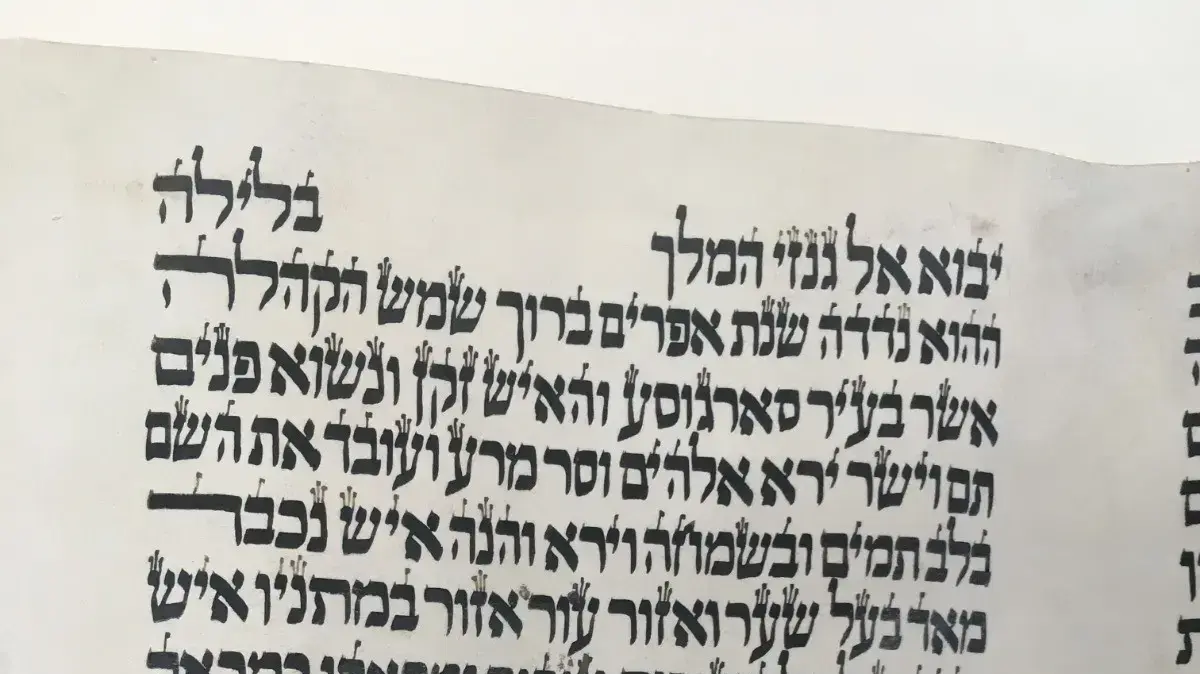 יבוא אל גנזי המלך בלילה
ההוא נדדה שנת אפרים ברוך שמש הקהלה
אשר בעיר סארגוסע והאיש זקן ונשוא פנים
תם וישר ירא אלהים וסר מרע ועובד את השם
בלב תמים ובשמחה וירא והנה איש נכבד
מאד בעל שער ואזור עור אזור במתניו איש